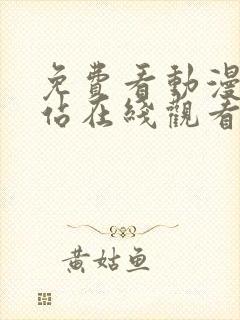 免費看動漫
佔在綫觀看
黃姑鱼